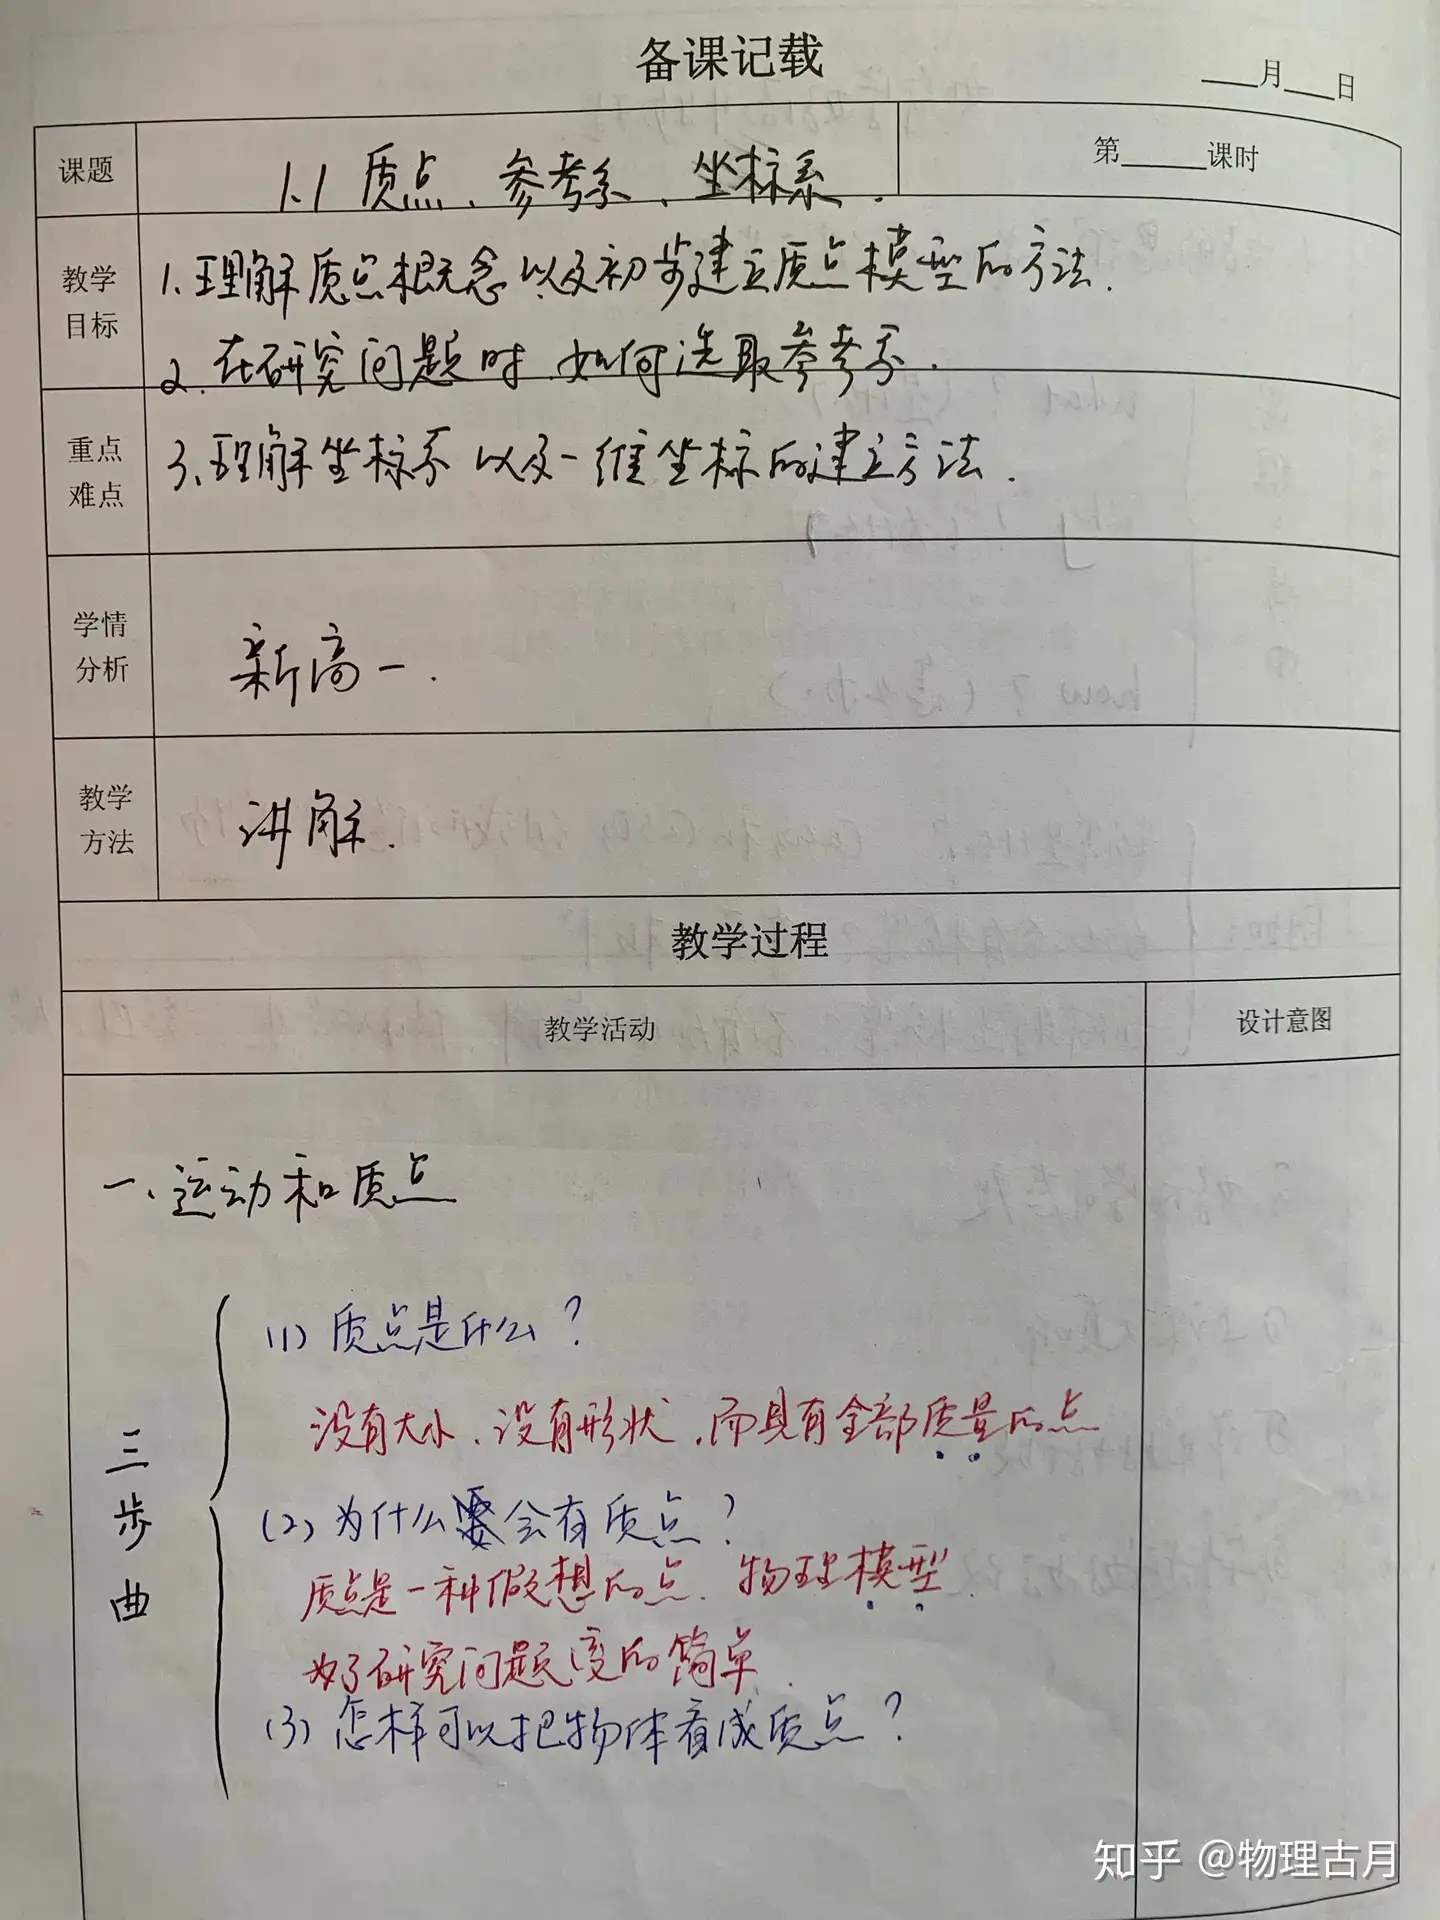 备课记载
___月___日
课题
1.1 质点、参考系、坐标系.
第____课时
教学
目标
1.理解质点概念以及初步建立质点模型的方法.
2.在研究问题时,如何选取参考系.
重点
难点
3.理解坐标系以及一维坐标的建立方法.
学情
分析
新高一.
教学
方法
讲解.
教学过程
教学活动
设计意图
一、运动和质点
三步曲
(1) 质点是什么?
没有大小、没有形状,而具有全部质量的点
(2) 为什么会有质点?
质点是一种假想的点. 物理模型.
为了研究问题变的简单.
(3) 怎样可以把物体看成质点?
知乎 @物理古月